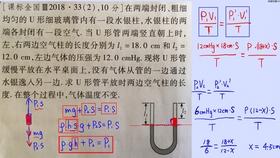 [课标全国Ⅲ2018·33(2),10分]在两端封闭、粗细
均匀的U形细玻璃管内有一段水银柱,水银柱的两
端各封闭有一段空气。当U形管两端竖直朝上时,
左、右两边空气柱的长度分别为l₁=18.0 cm和l₂=
12.0 cm,左边气体的压强为12.0 cmHg。现将U形管
缓慢平放在水平桌面上,没有气体从管的一边通过
水银逸入另一边。求U形管平放时两边空气柱的长
度。在整个过程中,气体温度不变。
P₁S
mg
P₂S
mg+P₁S=P₂S
ρghS+P₁S=P₂S
ρgh+P₁=P₂
P₁V₁=P₁'V₁'
12cmHg×18cm·S
P·18X·S
P₂V₂=P₂'V₂'
6cmHg×12cm·S
P(12-X)·S
18/6=18+X/12-X